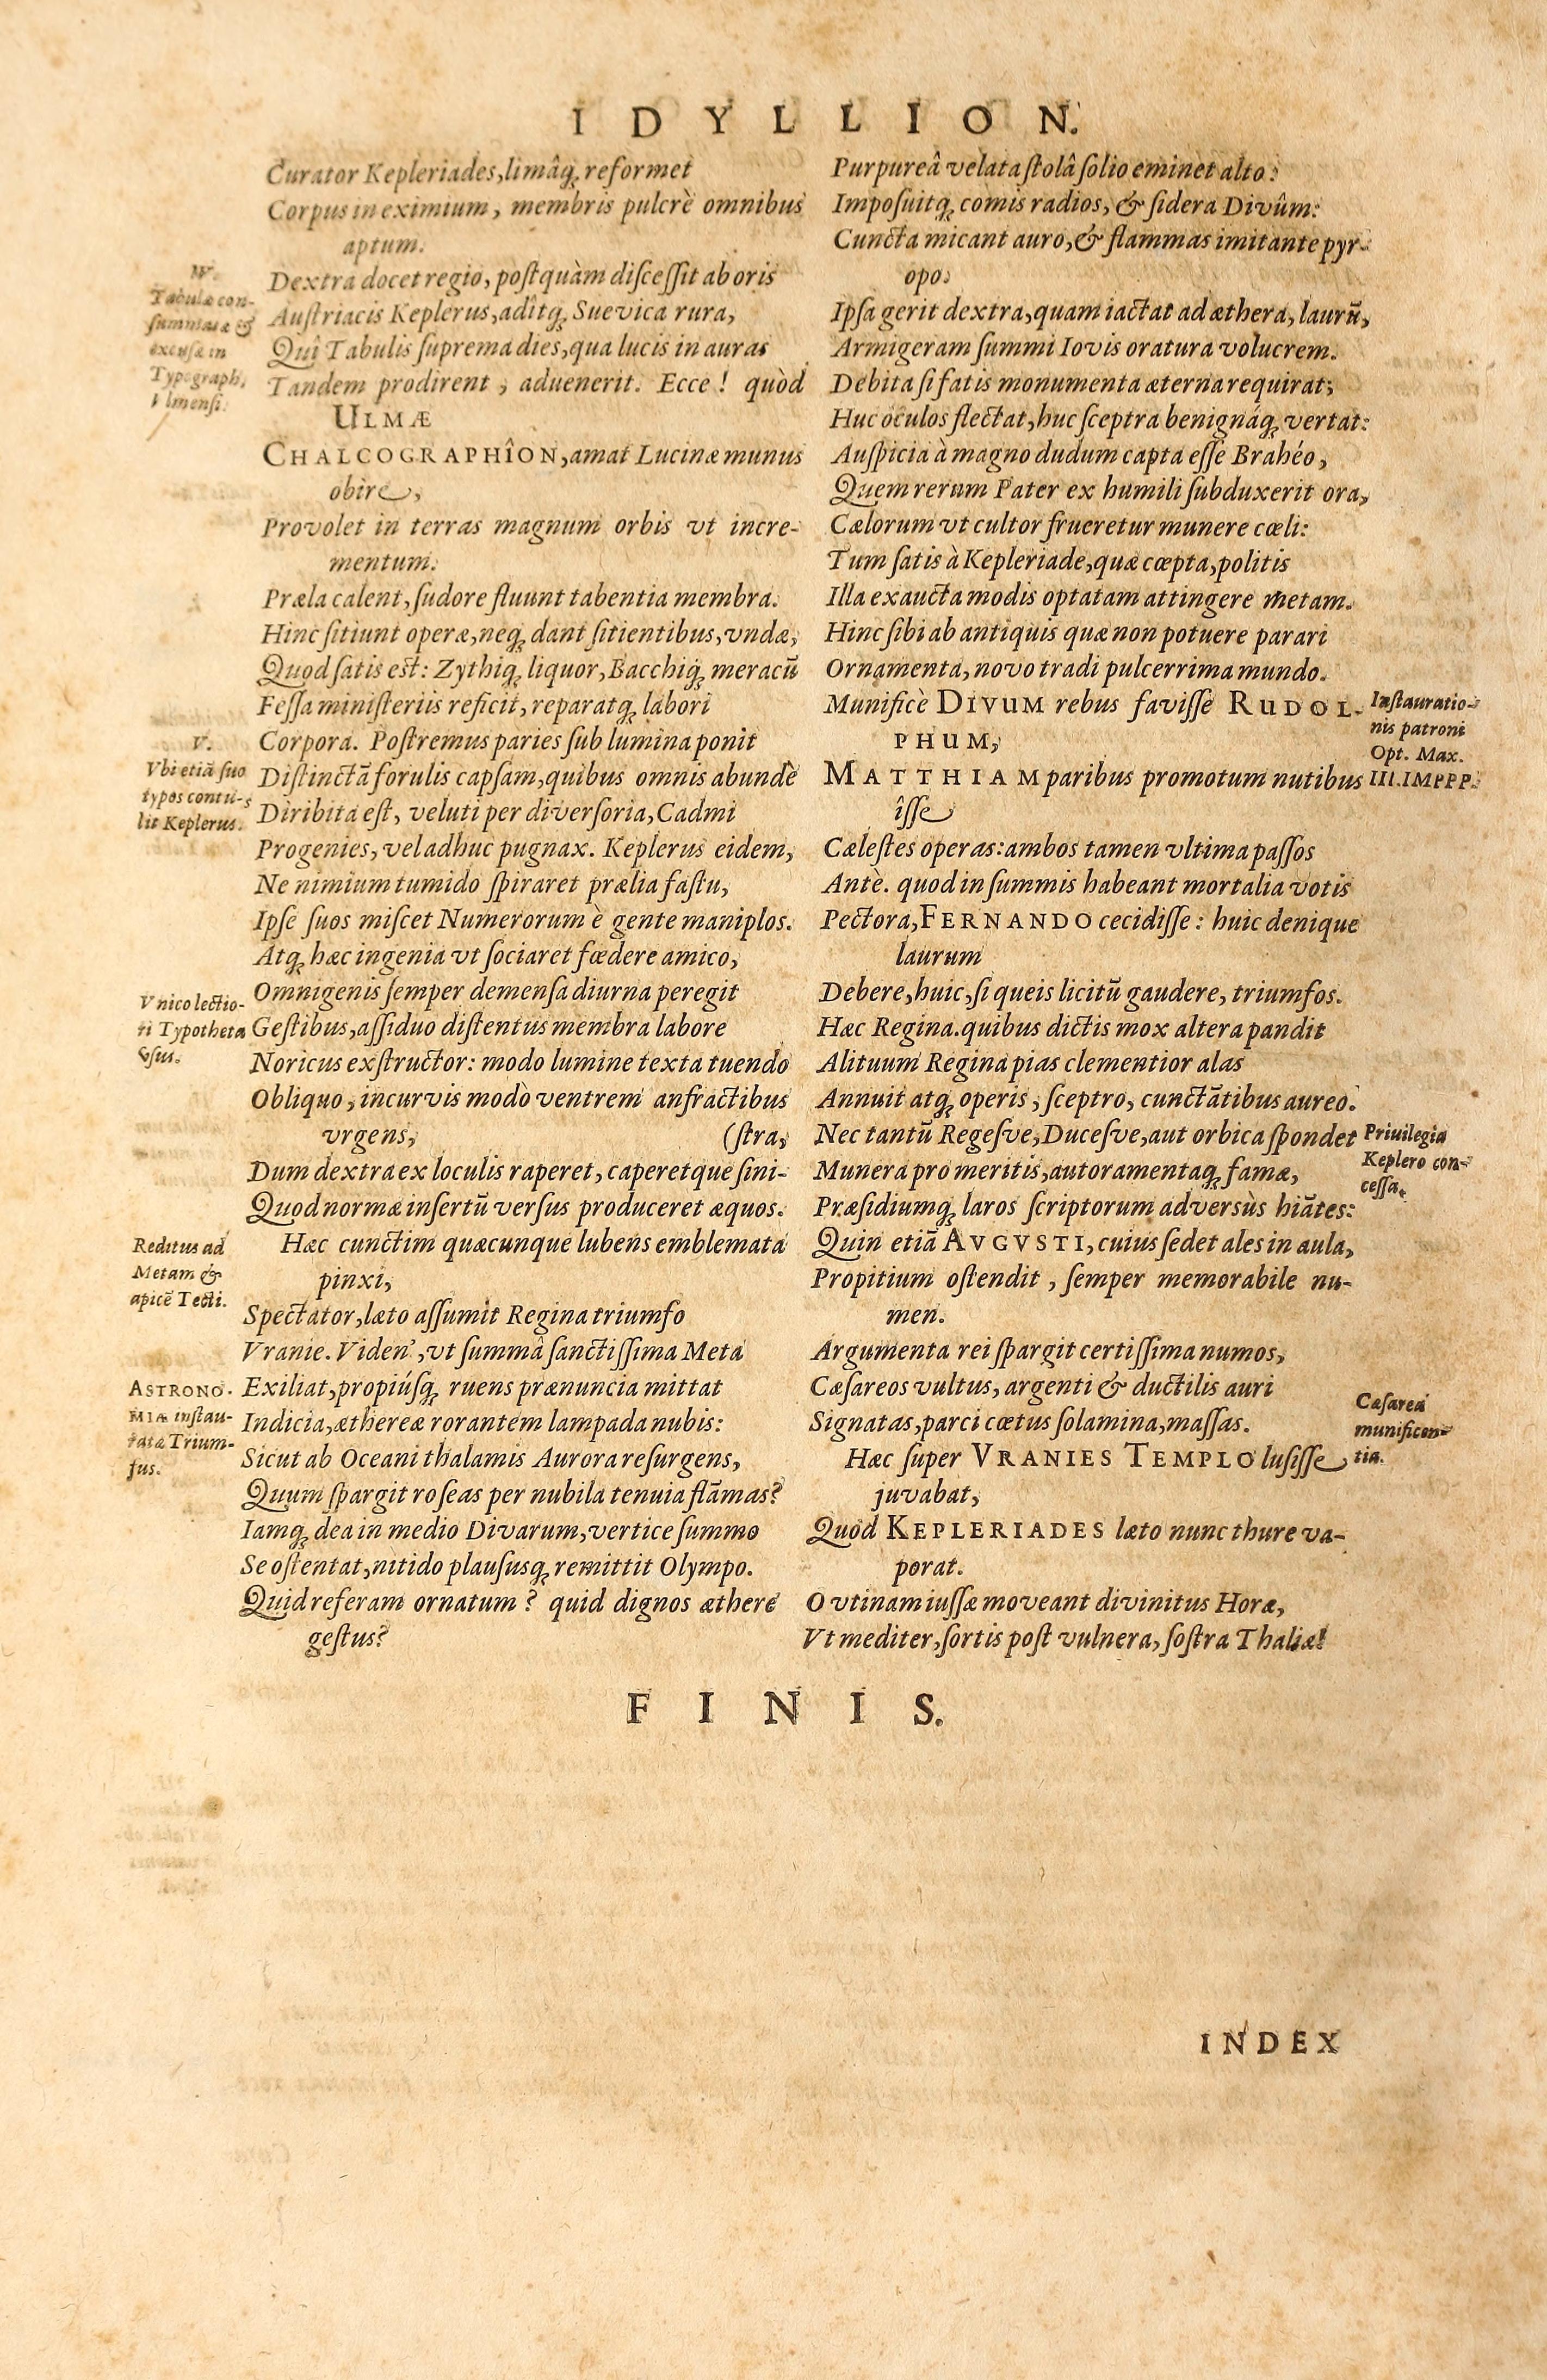 IDYLLION.
Curator Kepleriades, limâq́ꝫ reformet
Corpus in eximium, membris pulcrè omnibus
aptum.
Dextra docet regio, postquàm discessit ab oris
Austriacis Keplerus, aditq́ꝫ Suevica rura,
Quî Tabulis suprema dies, qua lucis in auras
Tandem prodirent, aduenerit. Ecce! quòd
ULMÆ
CHALCOGRAPHÎON, amat Lucinæ munus
obire,
Provolet in terras magnum orbis vt incre-
mentum.
Præla calent, sudore fluunt tabentia membra.
Hinc sitiunt operæ, neq́ꝫ dant sitientibus, vndæ,
Quod satis est: Zythiq́ꝫ liquor, Bacchiq́ꝫ meracũ
Fessa ministeriis reficit, reparatq́ꝫ labori
Corpora. Postremus paries sub lumina ponit
Distinctã forulis capsam, quibus omnis abundè
Diribita est, veluti per diversoria, Cadmi
Progenies, vel adhuc pugnax. Keplerus eidem,
Ne nimium tumido spiraret prælia fastu,
Ipse suos miscet Numerorum è gente maniplos.
Atq́ꝫ hæc ingenia vt sociaret fœdere amico,
Omnigenis semper demensa diurna peregit
Gestibus, assiduo distentus membra labore
Noricus exstructor: modo lumine texta tuendo
Obliquo, incurvis modò ventrem anfractibus
vrgens, (stra,
Dum dextra ex loculis raperet, caperetque sini-
Quod normæ insertũ versus produceret æquos.
Hæc cunctim quæcunque lubens emblemata
pinxi,
Spectator, læto assumit Regina triumfo
Vranie. Viden', vt summâ sanctissima Meta
Exiliat, propiúsq́ꝫ ruens prænuncia mittat
Indicia, æthereæ rorantem lampada nubis:
Sicut ab Oceani thalamis Aurora resurgens,
Quum spargit roseas per nubila tenuia flãmas?
Iamq́ꝫ dea in medio Divarum, vertice summo
Se ostentat, nitido plaususq́ꝫ remittit Olympo.
Quid referam ornatum? quid dignos æthere
gestus?
IV.
Tabulæ con-
summatæ &
excusæ in
Typograph.
Vlmensi.
V.
Vbi etiã suo
typos contu-
lit Keplerus.
Vnico lectio-
ni Typotheta
vsus.
Reditus ad
Metam &
apicẽ Tecti.
ASTRONO-
MIÆ instau-
ratæ Trium-
fus.
Purpureâ velata stolâ solio eminet alto:
Imposuitq́ꝫ comis radios, & sidera Divûm:
Cuncta micant auro, & flammas imitante pyr-
opo.
Ipsa gerit dextra, quam iactat ad æthera, laurũ,
Armigeram summi Iovis oratura volucrem.
Debita si fatis monumenta æterna requirat;
Huc oculos flectat, huc sceptra benignáq́ꝫ vertat:
Auspicia à magno dudum capta esse Brahéo,
Quem rerum Pater ex humili subduxerit ora,
Cælorum vt cultor frueretur munere cœli:
Tum satis à Kepleriade, quæ cœpta, politis
Illa exaucta modis optatam attingere metam.
Hinc sibi ab antiquis quæ non potuere parari
Ornamenta, novo tradi pulcerrima mundo.
Munificè DIVUM rebus favisse RUDOL-
PHUM,
MATTHIAM paribus promotum nutibus
îsse
Cælestes operas: ambos tamen vltima passos
Antè. quod in summis habeant mortalia votis
Pectora, FERNANDO cecidisse: huic denique
laurum
Debere, huic, si queis licitũ gaudere, triumfos.
Hæc Regina. quibus dictis mox altera pandit
Alituum Regina pias clementior alas
Annuit atq́ꝫ operis, sceptro, cunctãtibus aureo.
Nec tantũ Regesve, Ducesve, aut orbica spondet
Munera pro meritis, autoramentaq́ꝫ famæ,
Præsidiumq́ꝫ laros scriptorum adversùs hiãtes:
Quin etiã AVGVSTI, cuius sedet ales in aula,
Propitium ostendit, semper memorabile nu-
men.
Argumenta rei spargit certissima numos,
Cæsareos vultus, argenti & ductilis auri
Signatas, parci cœtus solamina, massas.
Hæc super VRANIES TEMPLO lusisse
juvabat,
Quod KEPLERIADES læto nunc thure va-
porat.
O vtinam iussæ moveant divinitus Horæ,
Vt mediter, sortis post vulnera, sostra Thaliæ!
Instauratio-
nis patroni
Opt. Max.
III. IMPPP.
Priuilegia
Keplero con-
cessa.
Cæsarea
munificen-
tia.
FINIS.
INDEX